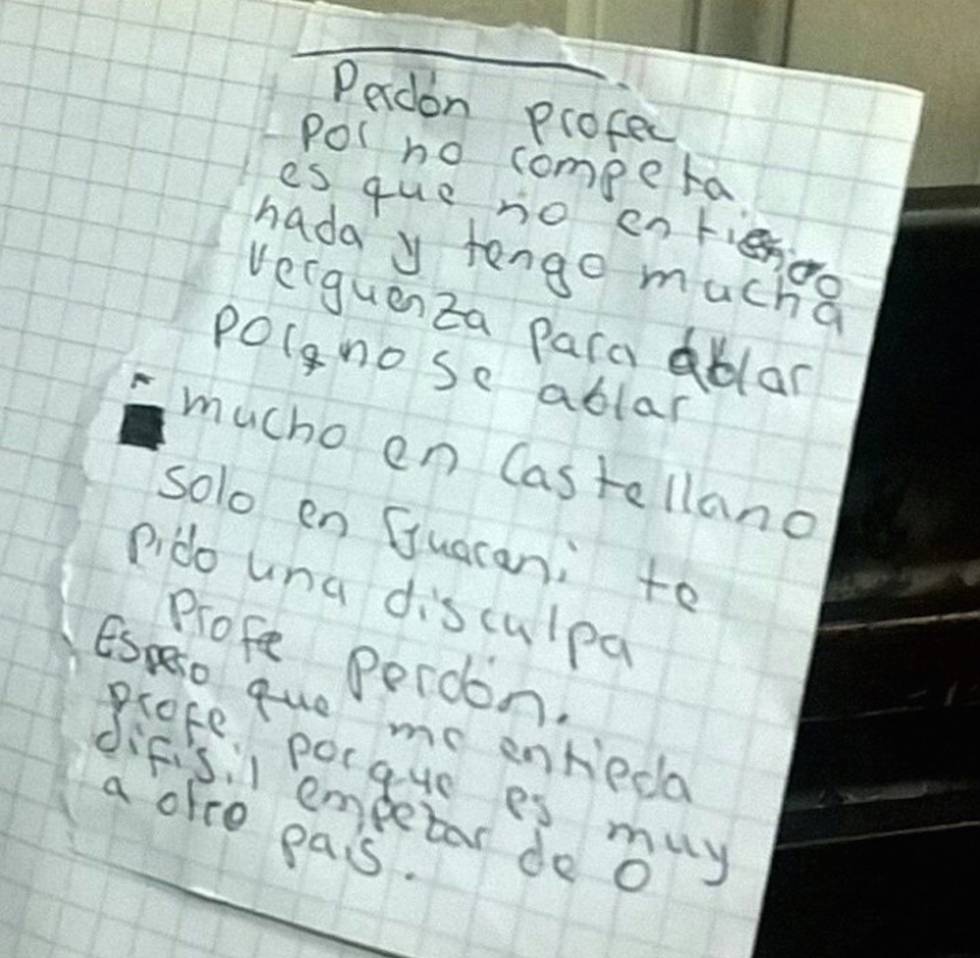 Perdón profe
por no competa
es que no entiendo
nada y tengo mucha
verguenza para ablar
porq no se ablar
mucho en Castellano
solo en Guarani te
pido una disculpa
Profe perdón.
Espero que me entieda
profe. porque es muy
difisil empezar de 0
a otro pais.